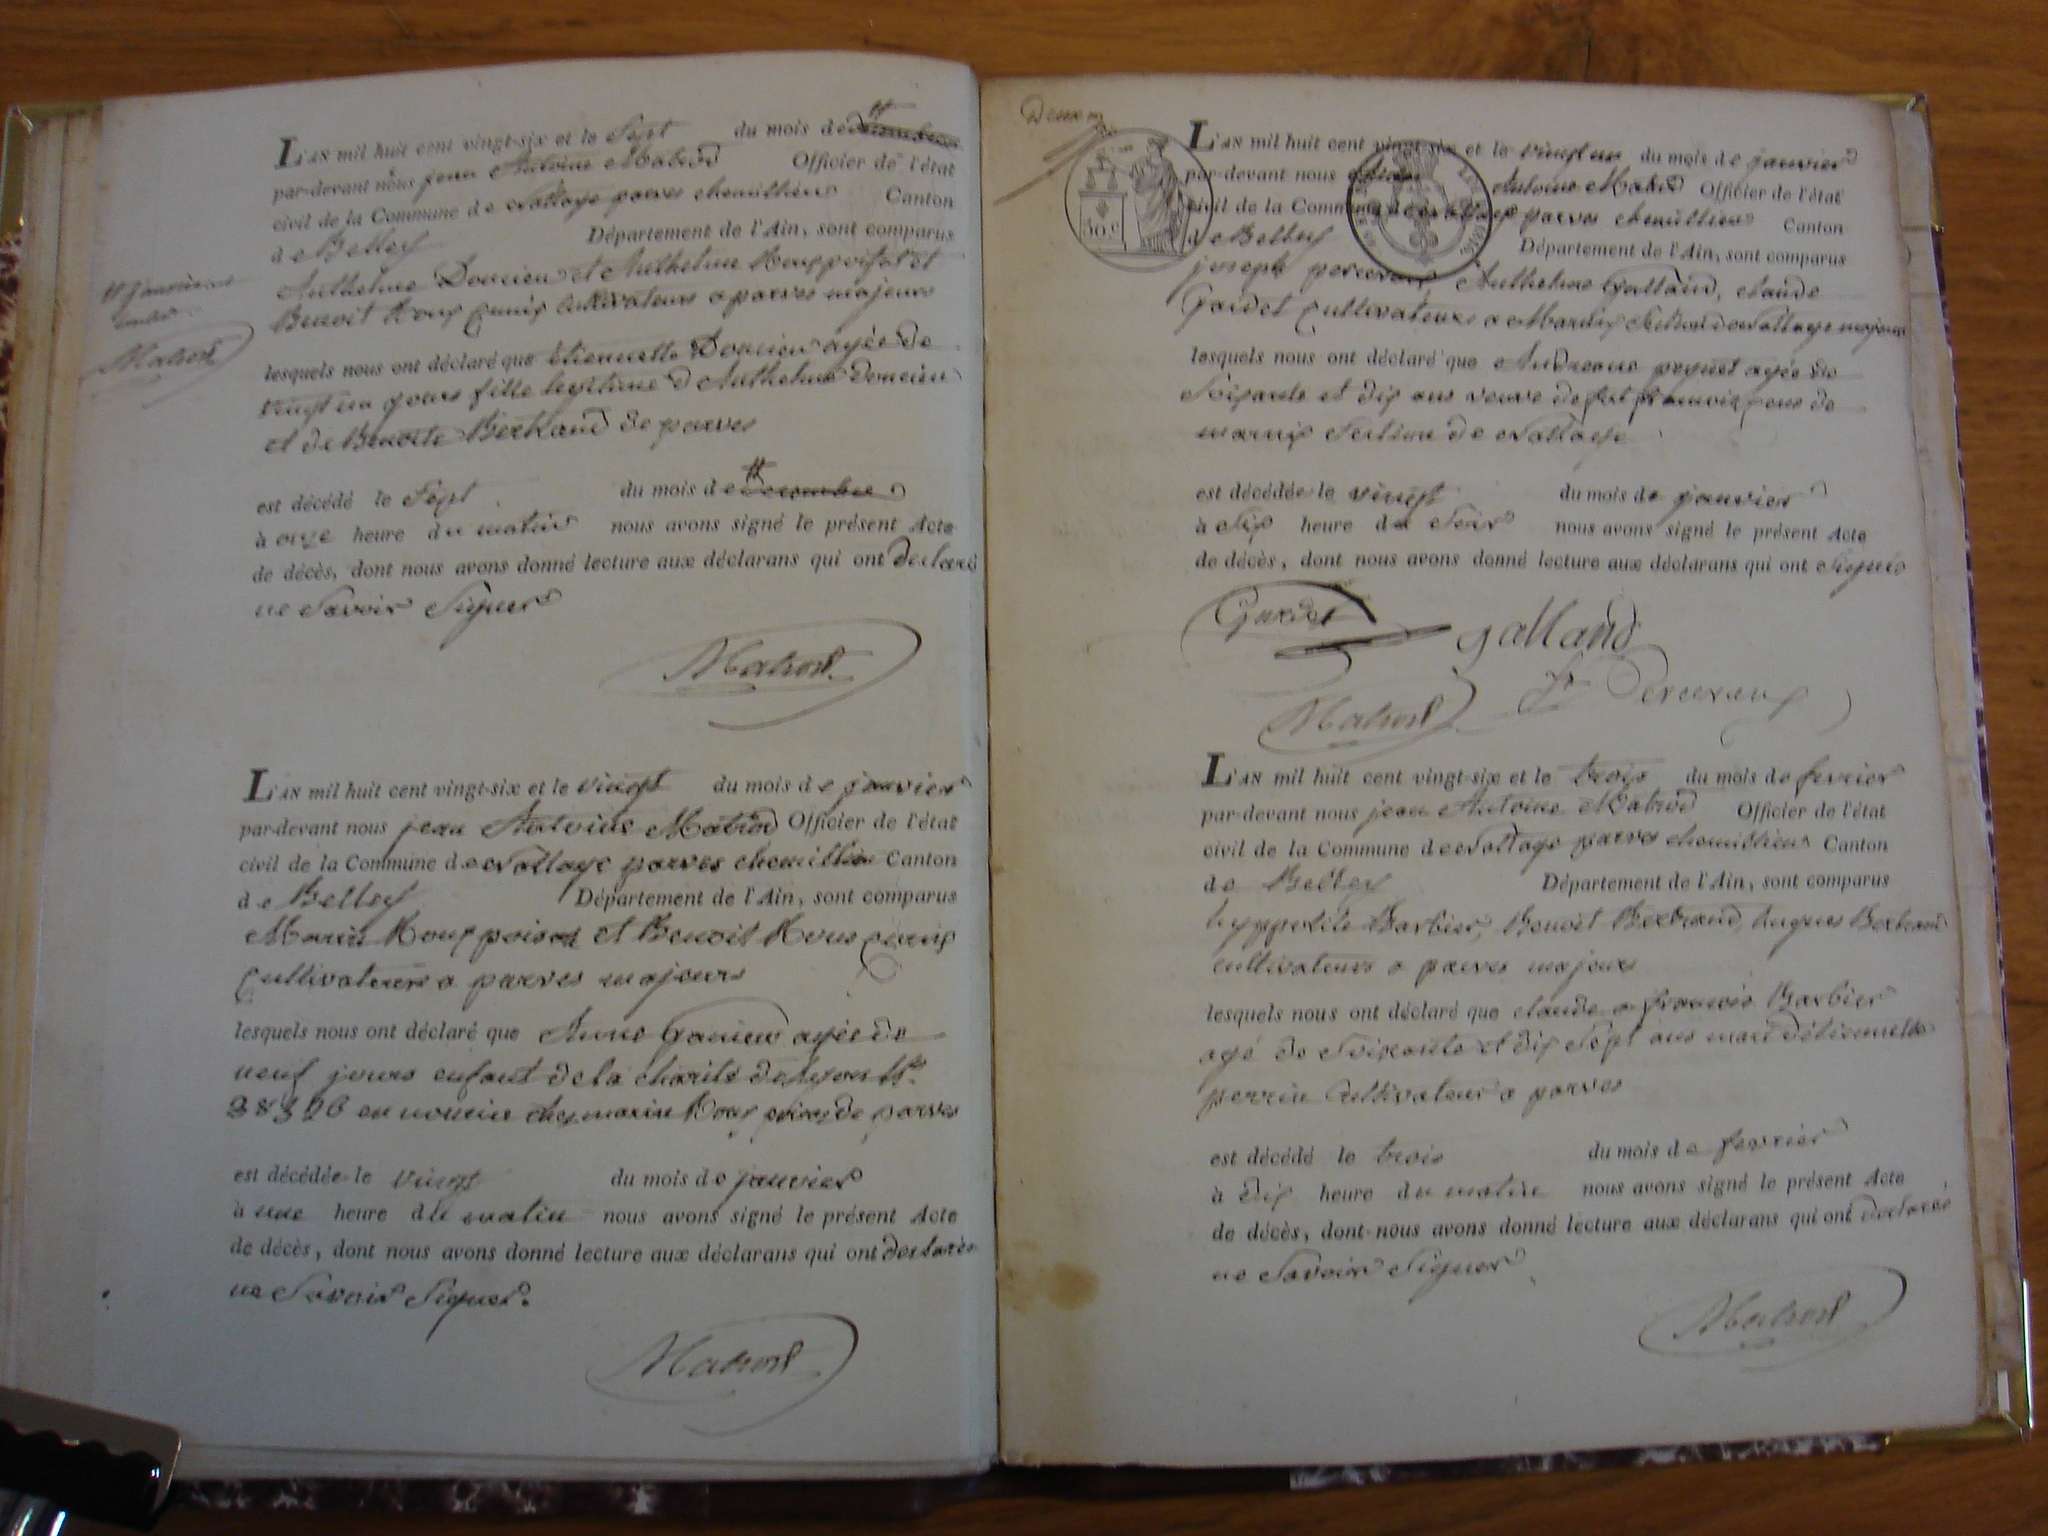 L'AN mil huit cent vingt-six et le Sept du mois de
par-devant nous jean Antoine Matrod Officier de l'état
civil de la Commune de parves chemillieu Canton
de Belley Département de l'Ain, sont comparus
Anthelme Doucieu et Anthelme
Benoit cultivateurs a parves majeurs
lesquels nous ont déclaré que étiennette Doucieu agée de
vingt un jours fille legitime d'Anthelme doucieu
et de Benoite Bertrand de parves
est décédé le Sept du mois de
à onze heure du matin nous avons signé le présent Acte
de décès, dont nous avons donné lecture aux déclarans qui ont declaré
ne Savoir Signer
Matrod
janvier
Matrod
L'AN mil huit cent vingt-six et le vingt du mois de janvier
par-devant nous jean Antoine Matrod Officier de l'état
civil de la Commune de parves chemillieu Canton
de Belley Département de l'Ain, sont comparus
et Benoit
Cultivateurs a parves majeurs
lesquels nous ont déclaré que Anne agée de
neuf jours enfant de la charité de lyon
en chez de parves
est décédée le vingt du mois de janvier
à une heure du matin nous avons signé le présent Acte
de décès, dont nous avons donné lecture aux déclarans qui ont declarés
ne Savoir Signer.
Matrod
Deux
50.c
L'AN mil huit cent vingt-six et le vingt un du mois de janvier
par-devant nous Antoine Matrod Officier de l'état
civil de la Commune de parves chemillieu Canton
de Belley Département de l'Ain, sont comparus
joseph perceveaux, Anthelme Galland, claude
Gardet Cultivateurs a Section de majeurs
lesquels nous ont déclaré que peyset agée de
Soixante et dix ans veuve de
Section de
est décédée le vingt du mois de janvier
à Six heure du Soir nous avons signé le présent Acte
de décès, dont nous avons donné lecture aux déclarans qui ont Signés
Gardet
galland
Matrod
Perceveaux
L'AN mil huit cent vingt-six et le trois du mois de fevrier
par-devant nous jean Antoine Matrod Officier de l'état
civil de la Commune de parves chemillieu Canton
de Belley Département de l'Ain, sont comparus
hyppolite Barbier, Benoit Bertrand, hugues Bertrand
cultivateurs a parves majeurs
lesquels nous ont déclaré que claude françois Barbier
agé de Soixante et dix Sept ans mari d'étiennette
perrin Cultivateur a parves
est décédé le trois du mois de fevrier
à dix heure du matin nous avons signé le présent Acte
de décès, dont nous avons donné lecture aux déclarans qui ont declarés
ne Savoir Signer
Matrod